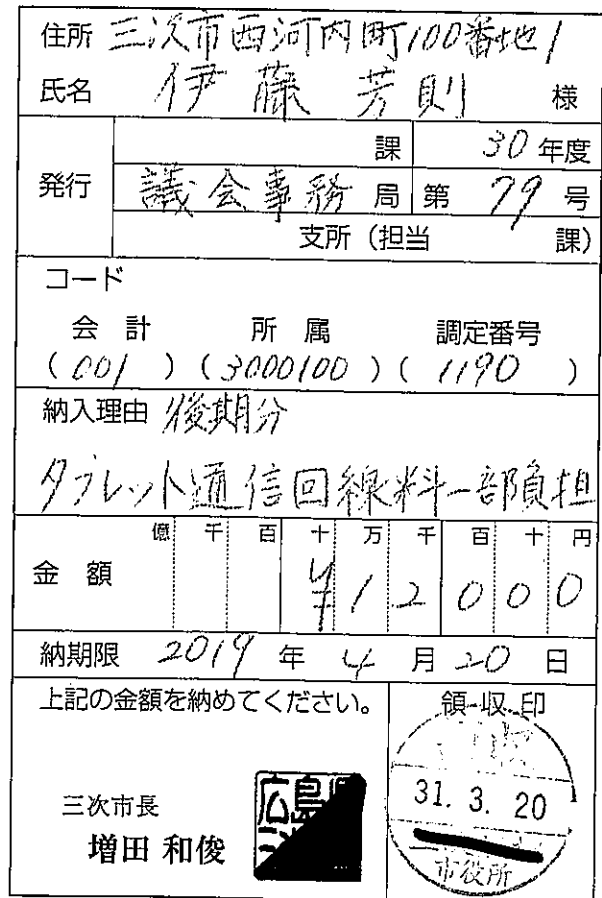 住所 三次市西河内町100番地1
氏名 伊藤 芳則 様
発行
課 30年度
議会事務局 第79号
支所(担当 課)
コード
会計 所属 調定番号
(001)(3000100)(1190)
納入理由 後期分
タブレット通信回線料一部負担
億 千 百 十 万 千 百 十 円
金額 ¥12000
納期限 2019年4月20日
上記の金額を納めてください。
領収印
31. 3. 20
市役所
三次市長
増田 和俊
広島